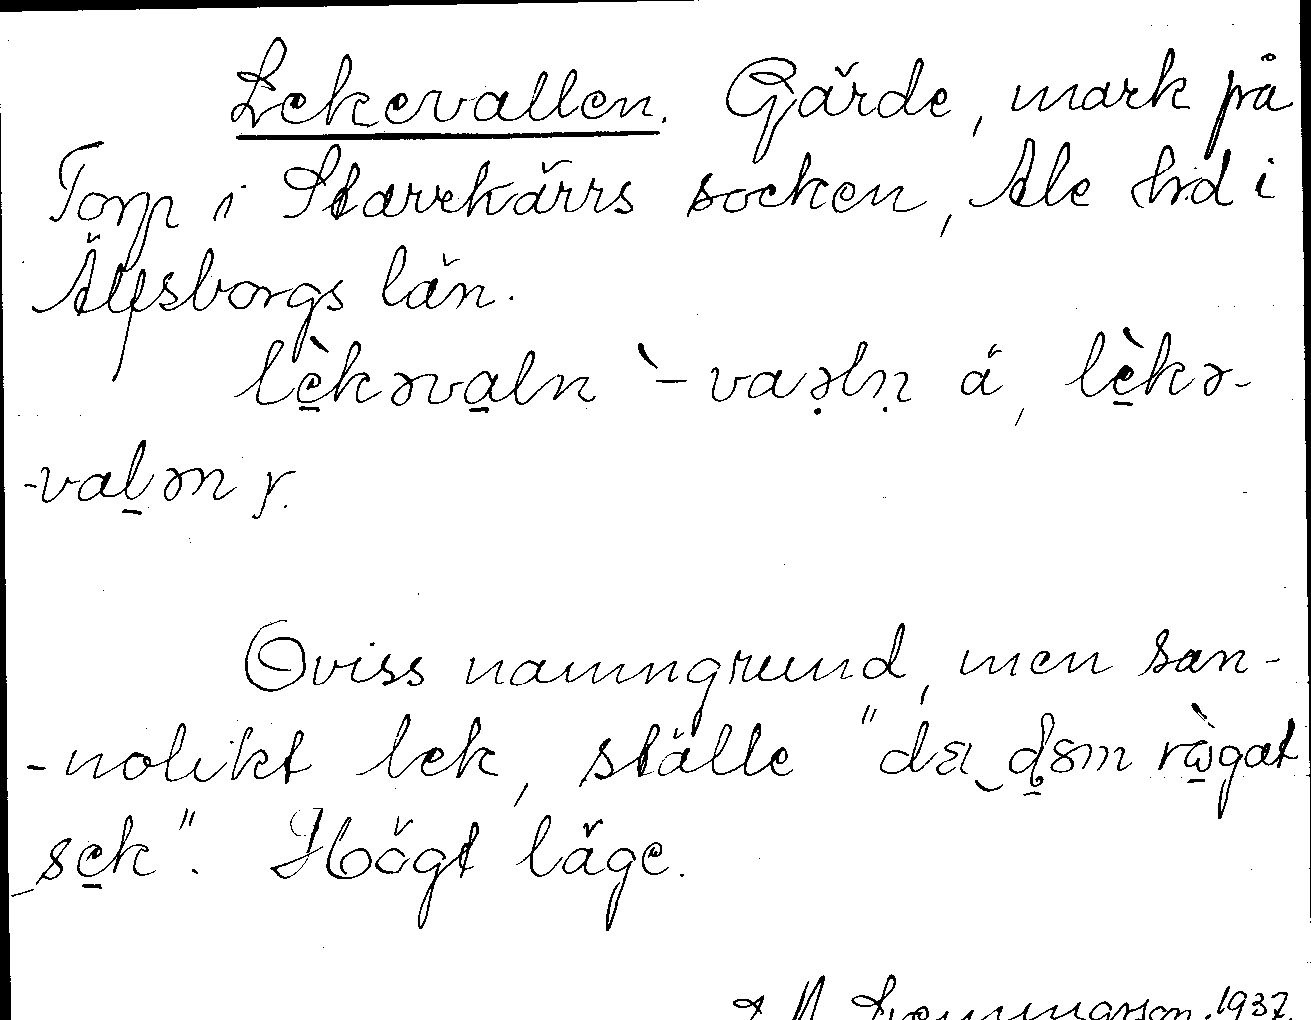 Lekevallen. Gärde, mark på
Torp i Starrkärrs socken, Ale hd i
Älfsborgs län.
lèkəvaln `-vaəln å, lèkə-
-valən y.
Oviss namngrund, men san-
-nolikt lek, ställe "dɛ dɛm rògat
sek". Högt läge.
1937.